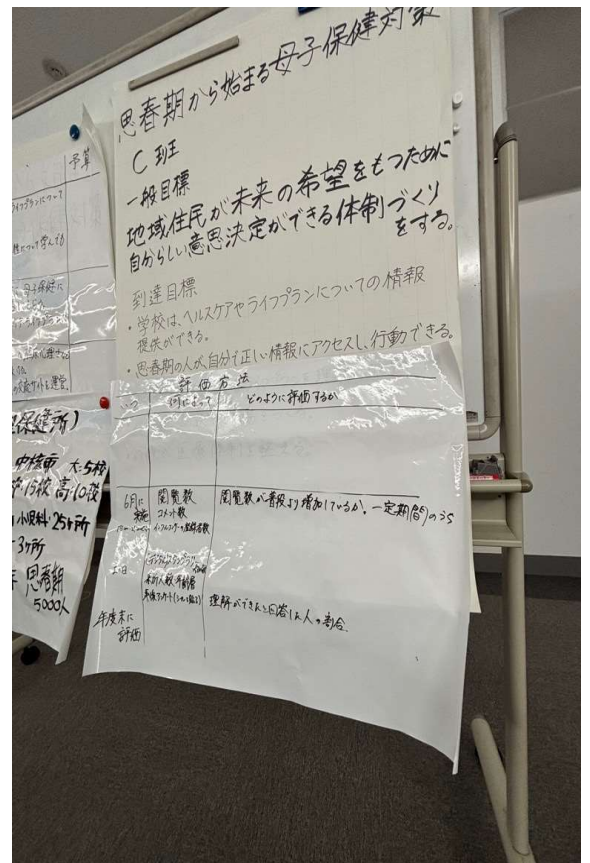 思春期から始まる母子保健対策
C 班
一般目標
地域住民が未来の希望をもつために
自分らしい意思決定ができる体制づくり
をする。
到達目標
・学校は、ヘルスケアやライフプランについての情報
提供ができる。
・思春期の人が、自分で正しい情報にアクセスし、行動できる。
評価方法
いつ 何によって どのように評価するか
6月に
実施
閲覧数
コメント数
インフルエンサーの登録者数
閲覧数が普段より増加しているか。一定期間のうち
土・日
来所人数
理解ができたと回答した人の割合.
年度末に
評価
予算
ライフプランについて
母子保健に
保健所)
中核市 大:5校
15校 高:10校
小児科:25ヶ所
3ヶ所
思春期
5000人